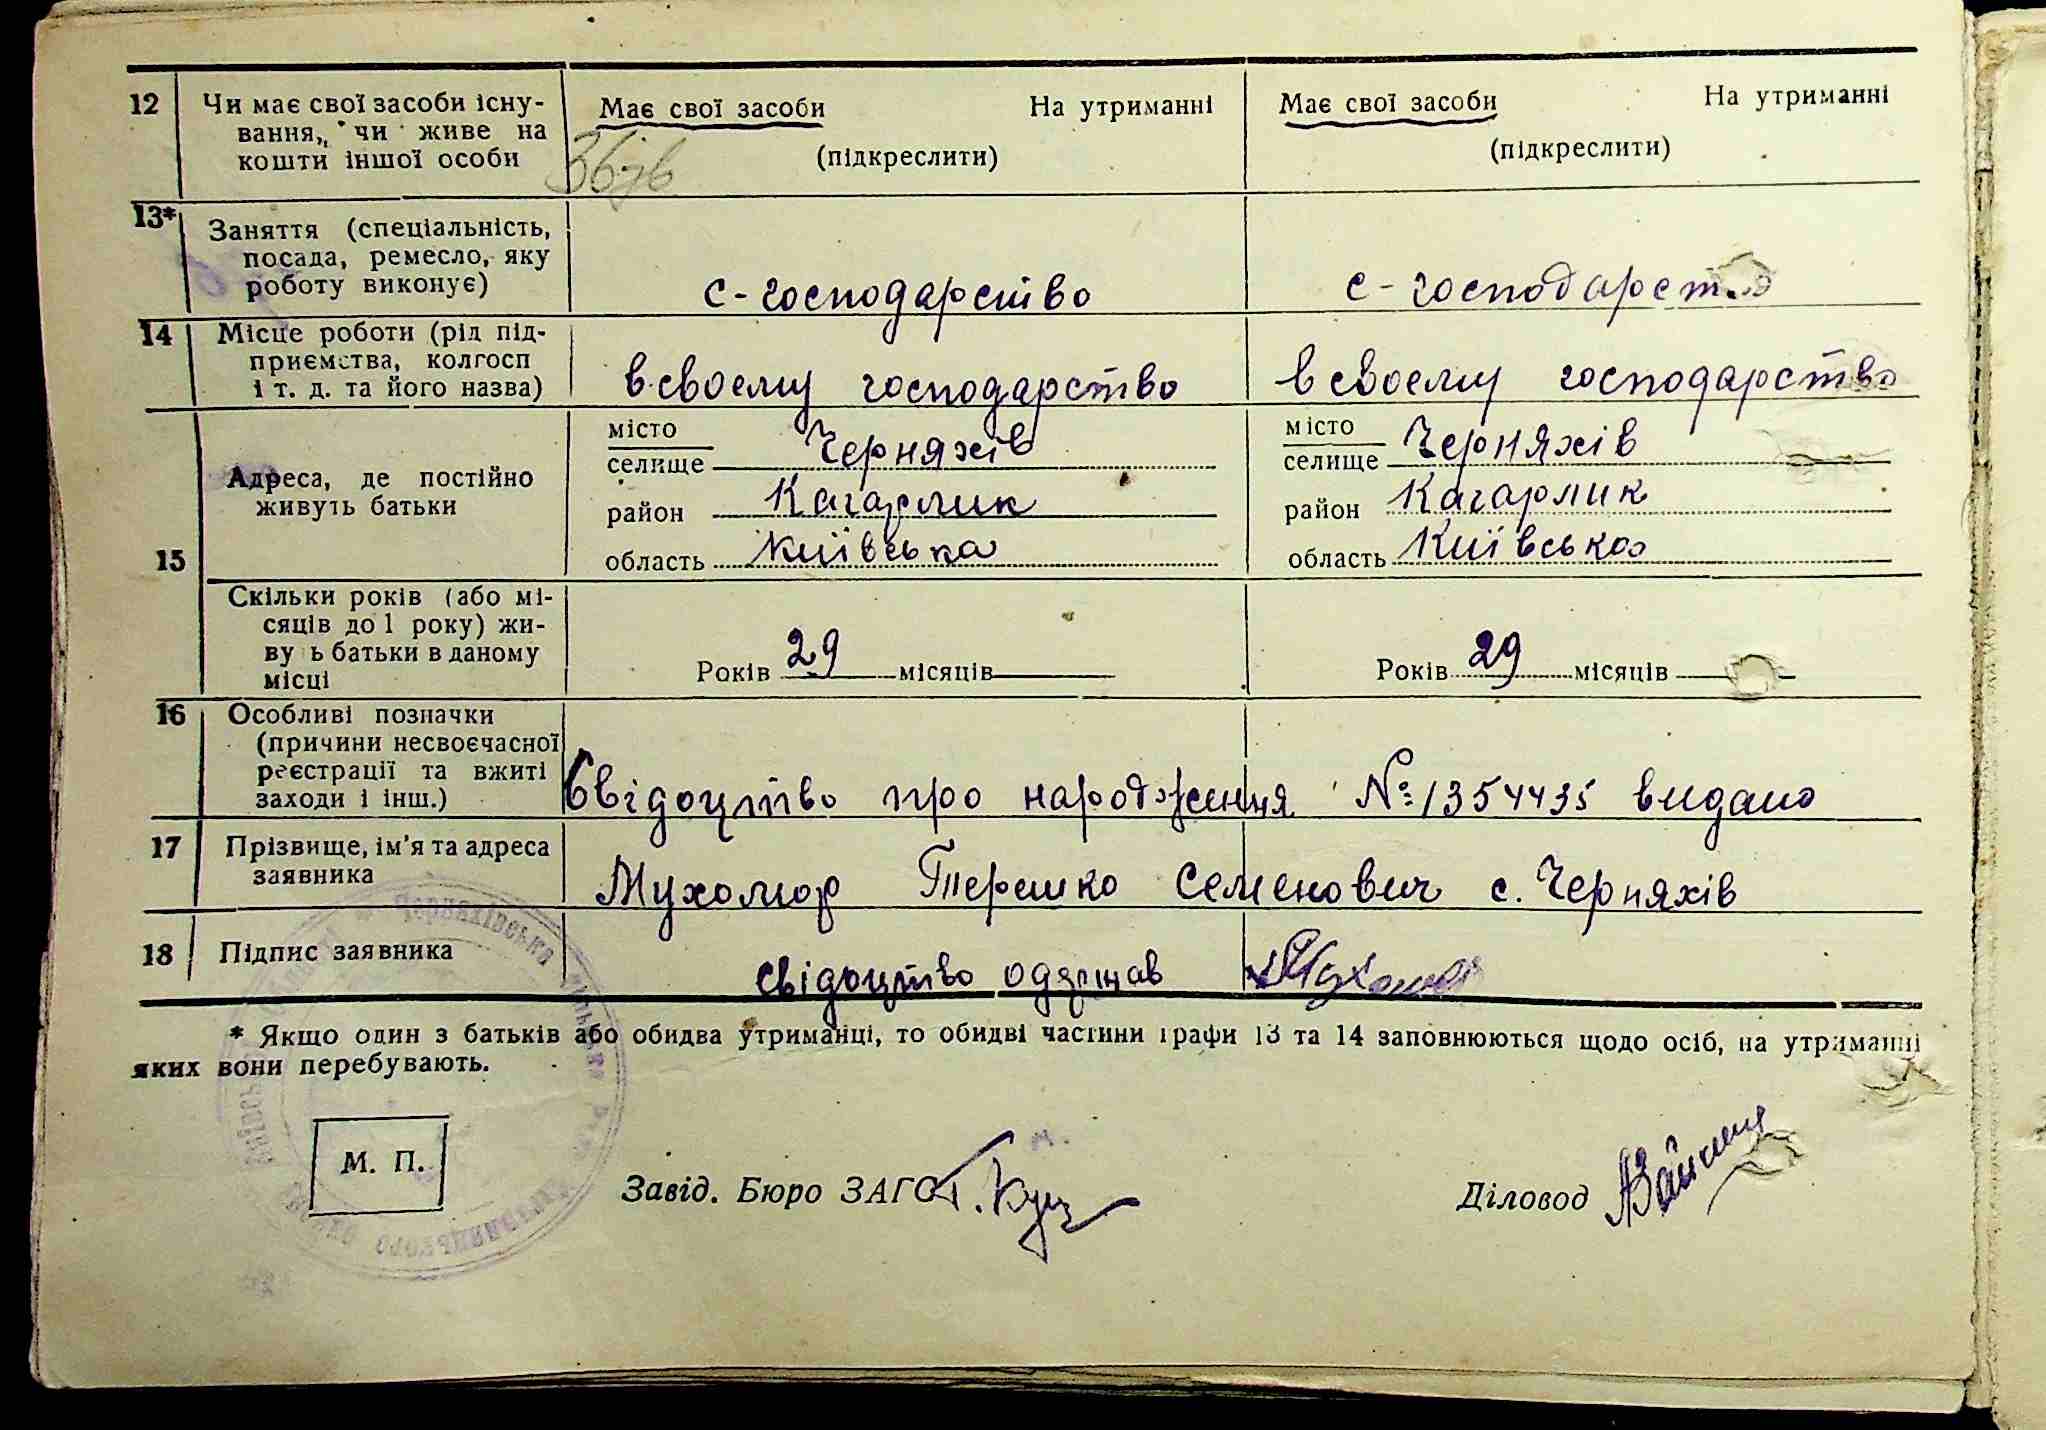 12 Чи має свої засоби існу- Має свої засоби На утриманні Має свої засоби На утриманні
вання, чи живе на
кошти іншої особи (підкреслити) (підкреслити)
13* Заняття (спеціальність,
посада, ремесло, яку
роботу виконує) с-господарство с-господарство
14 Місце роботи (рід під-
приємства, колгосп
і т. д. та його назва) в своему господарство в своему господарство
місто місто
селище Черняхів селище Черняхів
15 Адреса, де постійно
живуть батьки
район Кагарлик район Кагарлик
область Київська область Київська
Скільки років (або мі-
сяців до 1 року) жи-
ву ь батьки в даному
місці Років 29 місяців Років 29 місяців
16 Особливі позначки
(причини несвоєчасної
реєстрації та вжиті
заходи і інш.) Свідоцтво про народження № 1354435 видано
17 Прізвище, ім'я та адреса
заявника Мухомор Терешко Семенович с. Черняхів
18 Підпис заявника свідоцтво одержав
* Якщо один з батьків або обидва утриманці, то обидві частини графи 13 та 14 заповнюються щодо осіб, на утриманні
яких вони перебувають.
М. П.
Завід. Бюро ЗАГС Г. Куц Діловод